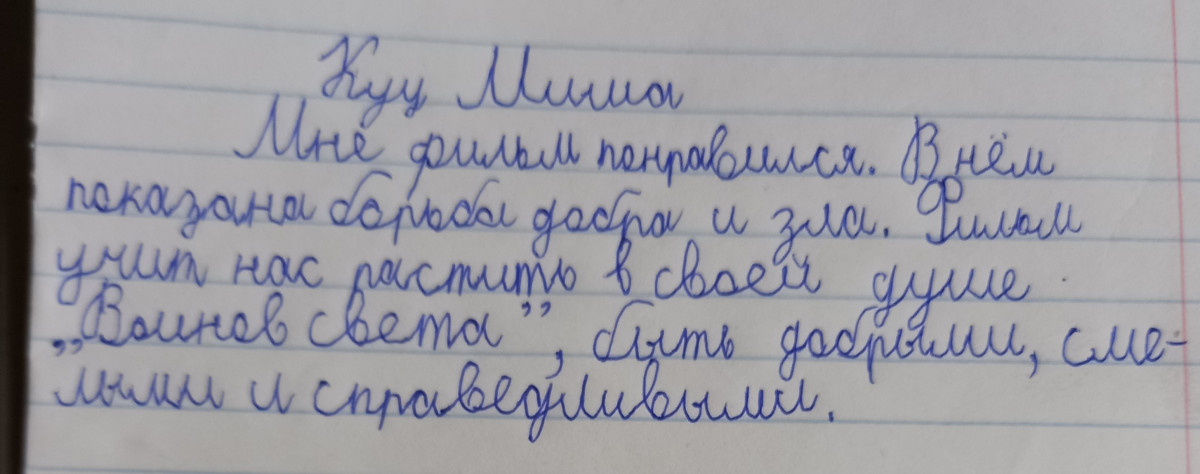 Куц Миша
Мне фильм понравился. В нём
показана борьба добра и зла. Фильм
учит нас растить в своей душе
„Воинов света”, быть добрыми, сме-
лыми и справедливыми.